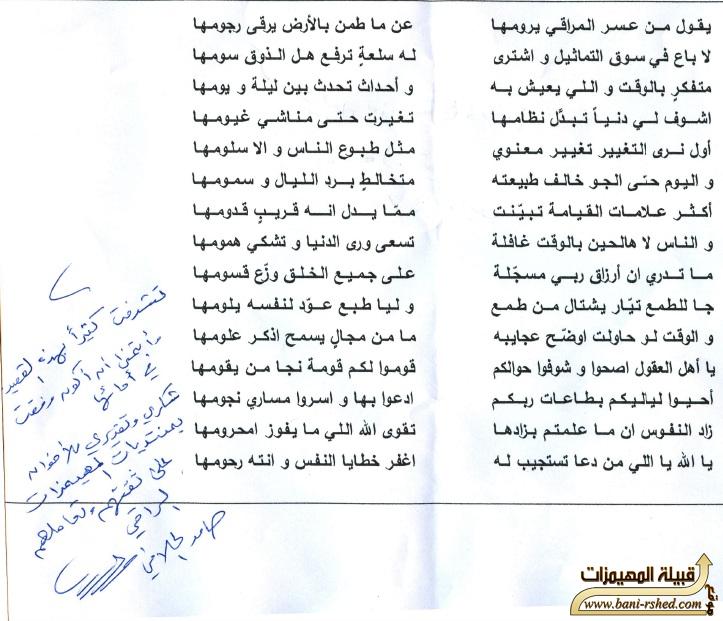 يقول من عسر المراقي يرومها عن ما طمن بالأرض يرقى رجومها
لا باع في سوق التماثيل و اشترى له سلعةٍ ترفع هل الذوق سومها
متفكرٍ بالوقت و اللي يعيش به و أحداث تحدث بين ليلة و يومها
اشوف لي دنياً تبدَّل نظامها تغيرت حتى مناشي غيومها
أول نرى التغيير تغيير معنوي مثل طبوع الناس و الا سلومها
و اليوم حتى الجو خالف طبيعته متخالطٍ برد الليال و سمومها
أكثر علامات القيامة تبيّنت ممّا يدل انه قريبٍ قدومها
و الناس لا هالحين بالوقت غافلة تسعى ورى الدنيا و تشكي همومها
ما تدري ان أرزاق ربي مسجّلة على جميع الخلق وزّع قسومها
جا للطمع تيّار يشتال من طمع و ليا طبع عوّد لنفسه يلومها
و الوقت لو حاولت اوضّح عجايبه ما من مجالٍ يسمح اذكر علومها
يا أهل العقول اصحوا و شوفوا حوالكم قوموا لكم قومة نجا من يقومها
أحيوا لياليكم بطاعات ربكم ادعوا بها و اسروا مساري نجومها
زاد النفوس ان ما علمتم بزادها تقوى الله اللي ما يفوز امحرومها
يا الله يا اللي من دعا تستجيب له اغفر خطايا النفس و انته رحومها
تشرفت كثيراً بهذه القصيد
وأتمنى ان أكون وفقت
في أدائها
شكري وتقديري للأخوان
بمنتديات المهيمزات
على ثقتهم وتعاملهم
الراقي
حامد
قبيلة المهيمزات
موقع
www.bani-rshed.com